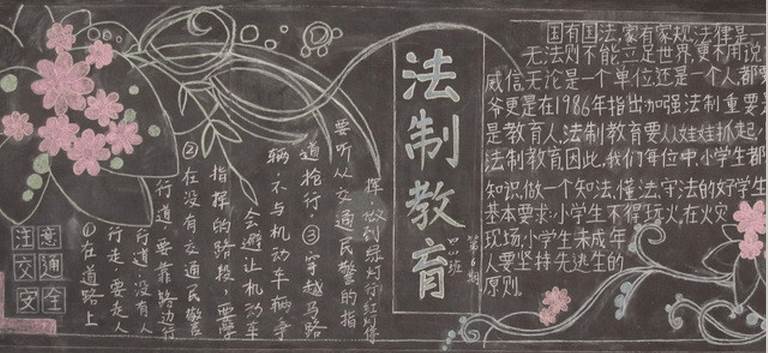 注意
交通
安全
①在道路上
行走,要走人
行道,没有人
行道,要靠路边行
②在没有交通民警
指挥的路段,要學
会避让机动车
辆,不与机动车辆争
道抢行,③穿越马路
要听从交通民警的指
挥,做到绿灯行红灯停
法制教育
班
第6期
国有国法,家有家规,法律是一
无法则不能立足世界,更不用说
威信无论是一个单位还是一个人都要
爷更是在1986年指出加强法制重要
是教育人,法制教育要从娃娃抓起,
法制教育,因此,我们每位中小学生都
知识,做一个知法,懂法,守法的好学生
基本要求:小学生不得玩火,在火灾
现场,小学生未成年
人要坚持先逃生的
原则。